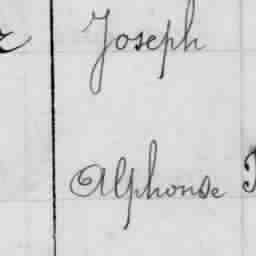 Joseph
Alphonse